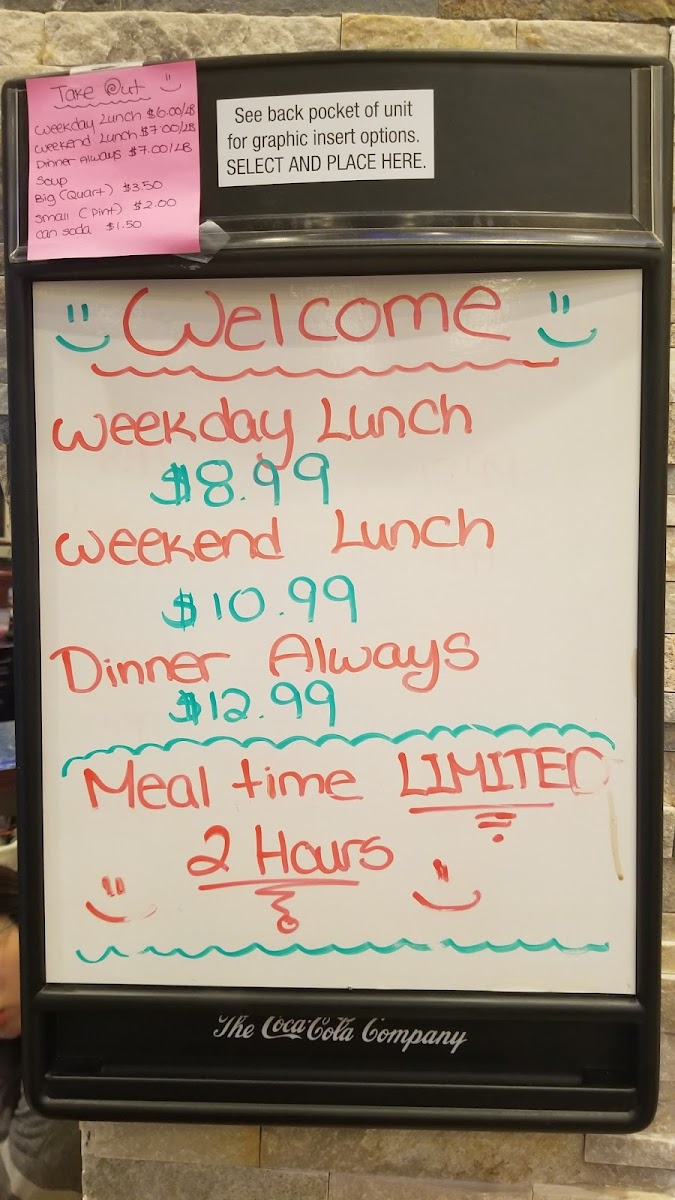 Take Out
Weekday Lunch $6.00/LB
Weekend Lunch $7.00/LB
Dinner Always $7.00/LB
Soup
Big (Quart) $3.50
Small (Pint) $2.00
can soda $1.50
See back pocket of unit
for graphic insert options.
SELECT AND PLACE HERE.
Welcome
Weekday Lunch
$8.99
Weekend Lunch
$10.99
Dinner Always
$12.99
Meal time LIMITED
2 Hours
The Coca-Cola Company